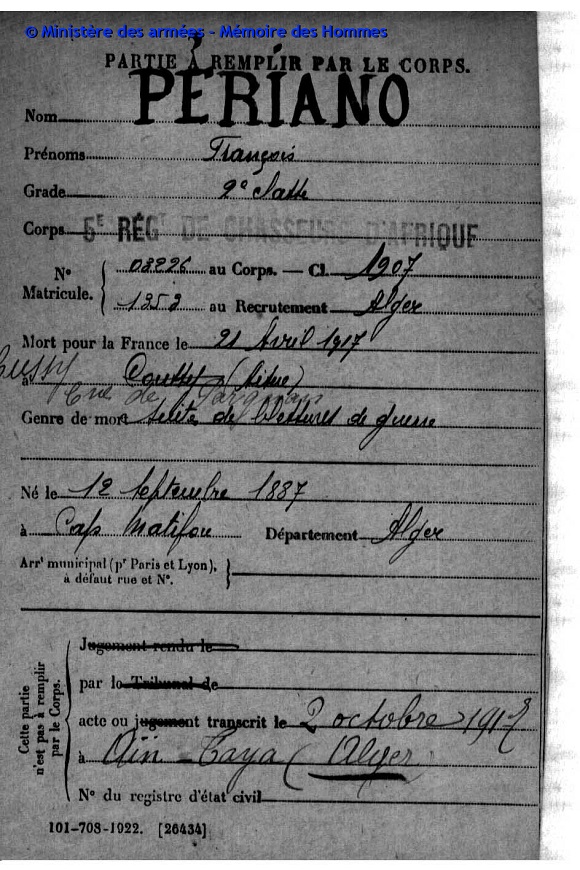 © Ministère des armées - Mémoire des Hommes
PARTIE À REMPLIR PAR LE CORPS.
Nom PERIANO
Prénoms François
Grade 2e
Corps 5E RÉGT DE CHASSEURS D'AFRIQUE
No Matricule. 03226 au Corps. — Cl. 1907
1252 au Recrutement Alger
Mort pour la France le 21 Avril 1917
à (Aisne)
Cne de
Genre de mort suites de blessures de guerre
Né le 12 Septembre 1887
à Cap Matifou Département Alger
Arrt municipal (pr Paris et Lyon),
à défaut rue et No.
Cette partie n'est pas à remplir par le Corps.
Jugement rendu le
par le Tribunal de
acte ou jugement transcrit le 2 octobre 1917
à Aïn-Taya (Alger
No du registre d'état civil
101-708-1022. [26434]